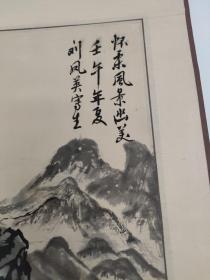 怀柔風景幽美
壬午年夏
刘凤英寫生